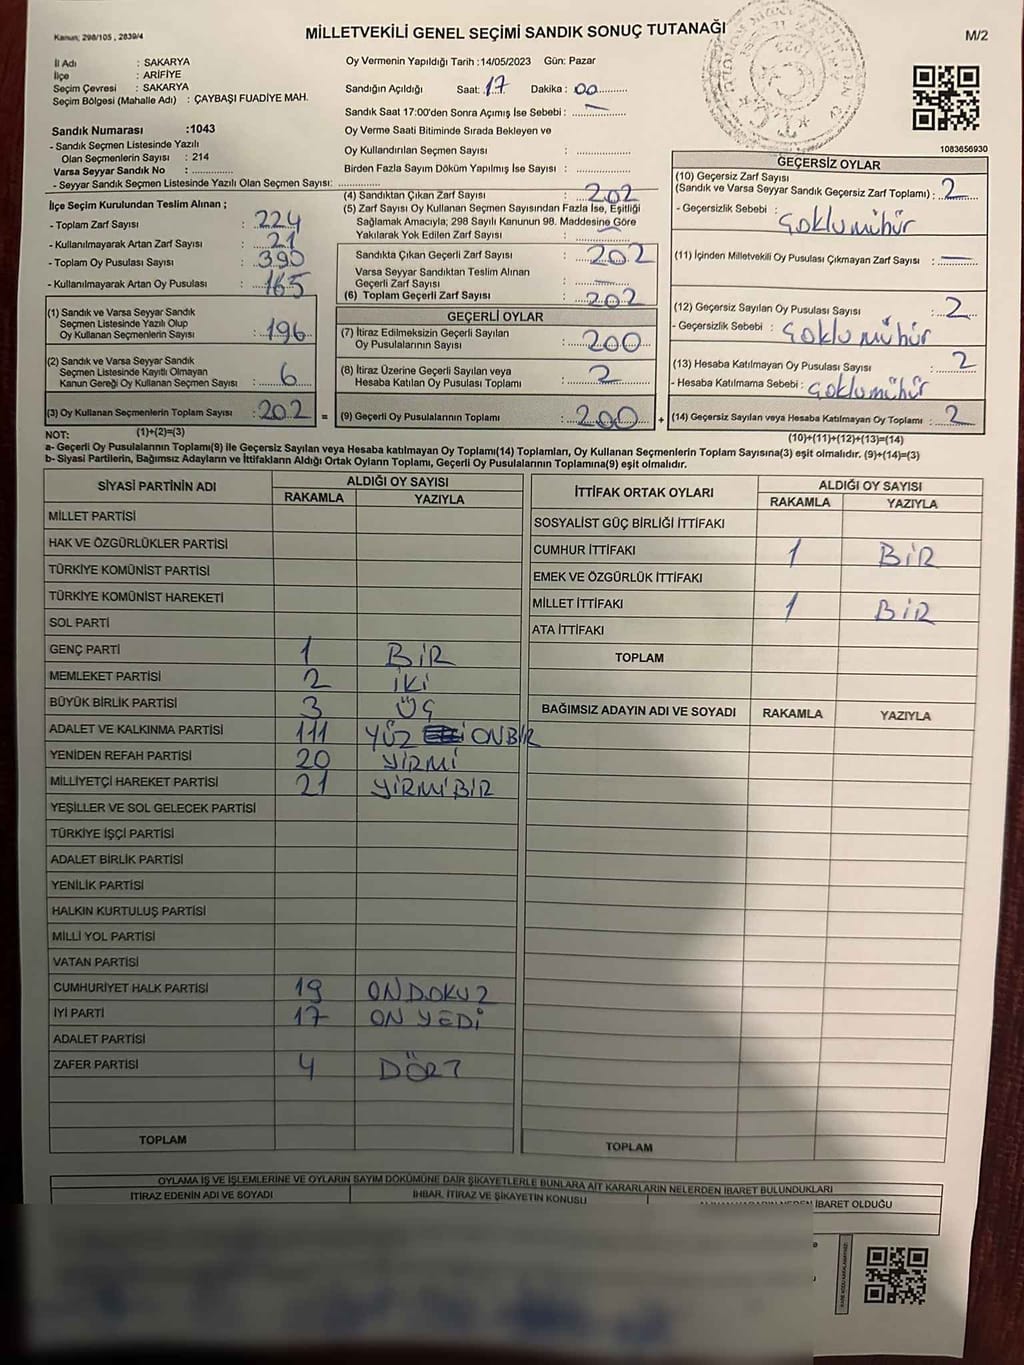 Kanun; 298/105 , 2839/4
MİLLETVEKİLİ GENEL SEÇİMİ SANDIK SONUÇ TUTANAĞI
M/2
İl Adı : SAKARYA
İlçe : ARİFİYE
Seçim Çevresi : SAKARYA
Seçim Bölgesi (Mahalle Adı) : ÇAYBAŞI FUADİYE MAH.
Sandık Numarası :1043
- Sandık Seçmen Listesinde Yazılı
Olan Seçmenlerin Sayısı : 214
Varsa Seyyar Sandık No : ..............
- Seyyar Sandık Seçmen Listesinde Yazılı Olan Seçmen Sayısı: ..............
Oy Vermenin Yapıldığı Tarih :14/05/2023 Gün: Pazar
Sandığın Açıldığı Saat: 17 Dakika : 00
Sandık Saat 17:00'den Sonra Açımış İse Sebebi : —
Oy Verme Saati Bitiminde Sırada Bekleyen ve
Oy Kullandırılan Seçmen Sayısı : ..............
Birden Fazla Sayım Döküm Yapılmış İse Sayısı : ..............
1083656930
İlçe Seçim Kurulundan Teslim Alınan ;
- Toplam Zarf Sayısı : 224
- Kullanılmayarak Artan Zarf Sayısı : 21
- Toplam Oy Pusulası Sayısı : 390
- Kullanılmayarak Artan Oy Pusulası : 165
(1) Sandık ve Varsa Seyyar Sandık
Seçmen Listesinde Yazılı Olup
Oy Kullanan Seçmenlerin Sayısı : 196
(2) Sandık ve Varsa Seyyar Sandık
Seçmen Listesinde Kayıtlı Olmayan
Kanun Gereği Oy Kullanan Seçmen Sayısı : 6
(3) Oy Kullanan Seçmenlerin Toplam Sayısı : 202 =
(1)+(2)=(3)
(4) Sandıktan Çıkan Zarf Sayısı : 202
(5) Zarf Sayısı Oy Kullanan Seçmen Sayısından Fazla İse, Eşitliği
Sağlamak Amacıyla; 298 Sayılı Kanunun 98. Maddesine Göre
Yakılarak Yok Edilen Zarf Sayısı : —
Sandıkta Çıkan Geçerli Zarf Sayısı : 202
Varsa Seyyar Sandıktan Teslim Alınan
Geçerli Zarf Sayısı : —
(6) Toplam Geçerli Zarf Sayısı : 202
GEÇERLİ OYLAR
(7) İtiraz Edilmeksizin Geçerli Sayılan
Oy Pusulalarının Sayısı : 200
(8) İtiraz Üzerine Geçerli Sayılan veya
Hesaba Katılan Oy Pusulası Toplamı : 2
(9) Geçerli Oy Pusulalarının Toplamı : 200 +
GEÇERSİZ OYLAR
(10) Geçersiz Zarf Sayısı
(Sandık ve Varsa Seyyar Sandık Geçersiz Zarf Toplamı) : 2
- Geçersizlik Sebebi : Çoklu mühür
(11) İçinden Milletvekili Oy Pusulası Çıkmayan Zarf Sayısı : —
(12) Geçersiz Sayılan Oy Pusulası Sayısı : 2
- Geçersizlik Sebebi : Çoklu mühür
(13) Hesaba Katılmayan Oy Pusulası Sayısı : 2
- Hesaba Katılmama Sebebi : Çoklu mühür
(14) Geçersiz Sayılan veya Hesaba Katılmayan Oy Toplamı : 2
(10)+(11)+(12)+(13)=(14)
NOT:
a- Geçerli Oy Pusulalarının Toplamı(9) ile Geçersiz Sayılan veya Hesaba katılmayan Oy Toplamı(14) Toplamları, Oy Kullanan Seçmenlerin Toplam Sayısına(3) eşit olmalıdır. (9)+(14)=(3)
b- Siyasi Partilerin, Bağımsız Adayların ve İttifakların Aldığı Ortak Oyların Toplamı, Geçerli Oy Pusulalarının Toplamına(9) eşit olmalıdır.
SİYASİ PARTİNİN ADI ALDIĞI OY SAYISI
RAKAMLA YAZIYLA
MİLLET PARTİSİ
HAK VE ÖZGÜRLÜKLER PARTİSİ
TÜRKİYE KOMÜNİST PARTİSİ
TÜRKİYE KOMÜNİST HAREKETİ
SOL PARTİ
GENÇ PARTİ 1 BİR
MEMLEKET PARTİSİ 2 İKİ
BÜYÜK BİRLİK PARTİSİ 3 ÜÇ
ADALET VE KALKINMA PARTİSİ 111 YÜZ ONBİR
YENİDEN REFAH PARTİSİ 20 YİRMİ
MİLLİYETÇİ HAREKET PARTİSİ 21 YİRMİBİR
YEŞİLLER VE SOL GELECEK PARTİSİ
TÜRKİYE İŞÇİ PARTİSİ
ADALET BİRLİK PARTİSİ
YENİLİK PARTİSİ
HALKIN KURTULUŞ PARTİSİ
MİLLİ YOL PARTİSİ
VATAN PARTİSİ
CUMHURİYET HALK PARTİSİ 19 ONDOKUZ
İYİ PARTİ 17 ON YEDİ
ADALET PARTİSİ
ZAFER PARTİSİ 4 DÖRT
TOPLAM
İTTİFAK ORTAK OYLARI ALDIĞI OY SAYISI
RAKAMLA YAZIYLA
SOSYALİST GÜÇ BİRLİĞİ İTTİFAKI
CUMHUR İTTİFAKI 1 BİR
EMEK VE ÖZGÜRLÜK İTTİFAKI
MİLLET İTTİFAKI 1 BİR
ATA İTTİFAKI
TOPLAM
BAĞIMSIZ ADAYIN ADI VE SOYADI RAKAMLA YAZIYLA
TOPLAM
OYLAMA İŞ VE İŞLEMLERİNE VE OYLARIN SAYIM DÖKÜMÜNE DAİR ŞİKAYETLERLE BUNLARA AİT KARARLARIN NELERDEN İBARET BULUNDUKLARI
İTİRAZ EDENİN ADI VE SOYADI İHBAR, İTİRAZ VE ŞİKAYETİN KONUSU İBARET OLDUĞU